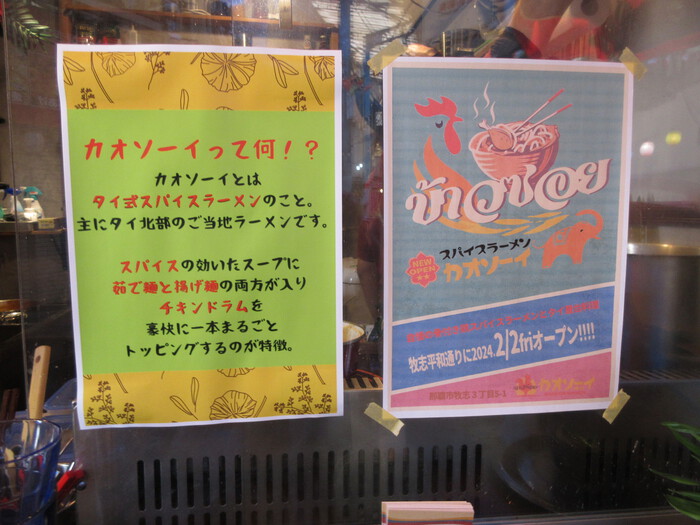 カオソーイって何！？
カオソーイとは
タイ式スパイスラーメンのこと。
主にタイ北部のご当地ラーメンです。
スパイスの効いたスープに
茹で麺と揚げ麺の両方が入り
チキンドラムを
豪快に一本まるごと
トッピングするのが特徴。
ข้าวซอย
スパイスラーメン
NEW
OPEN
カオソーイ
牧志平和通りに2024.2/2friオープン!!!!
那覇市牧志3丁目5-1
カオソーイ